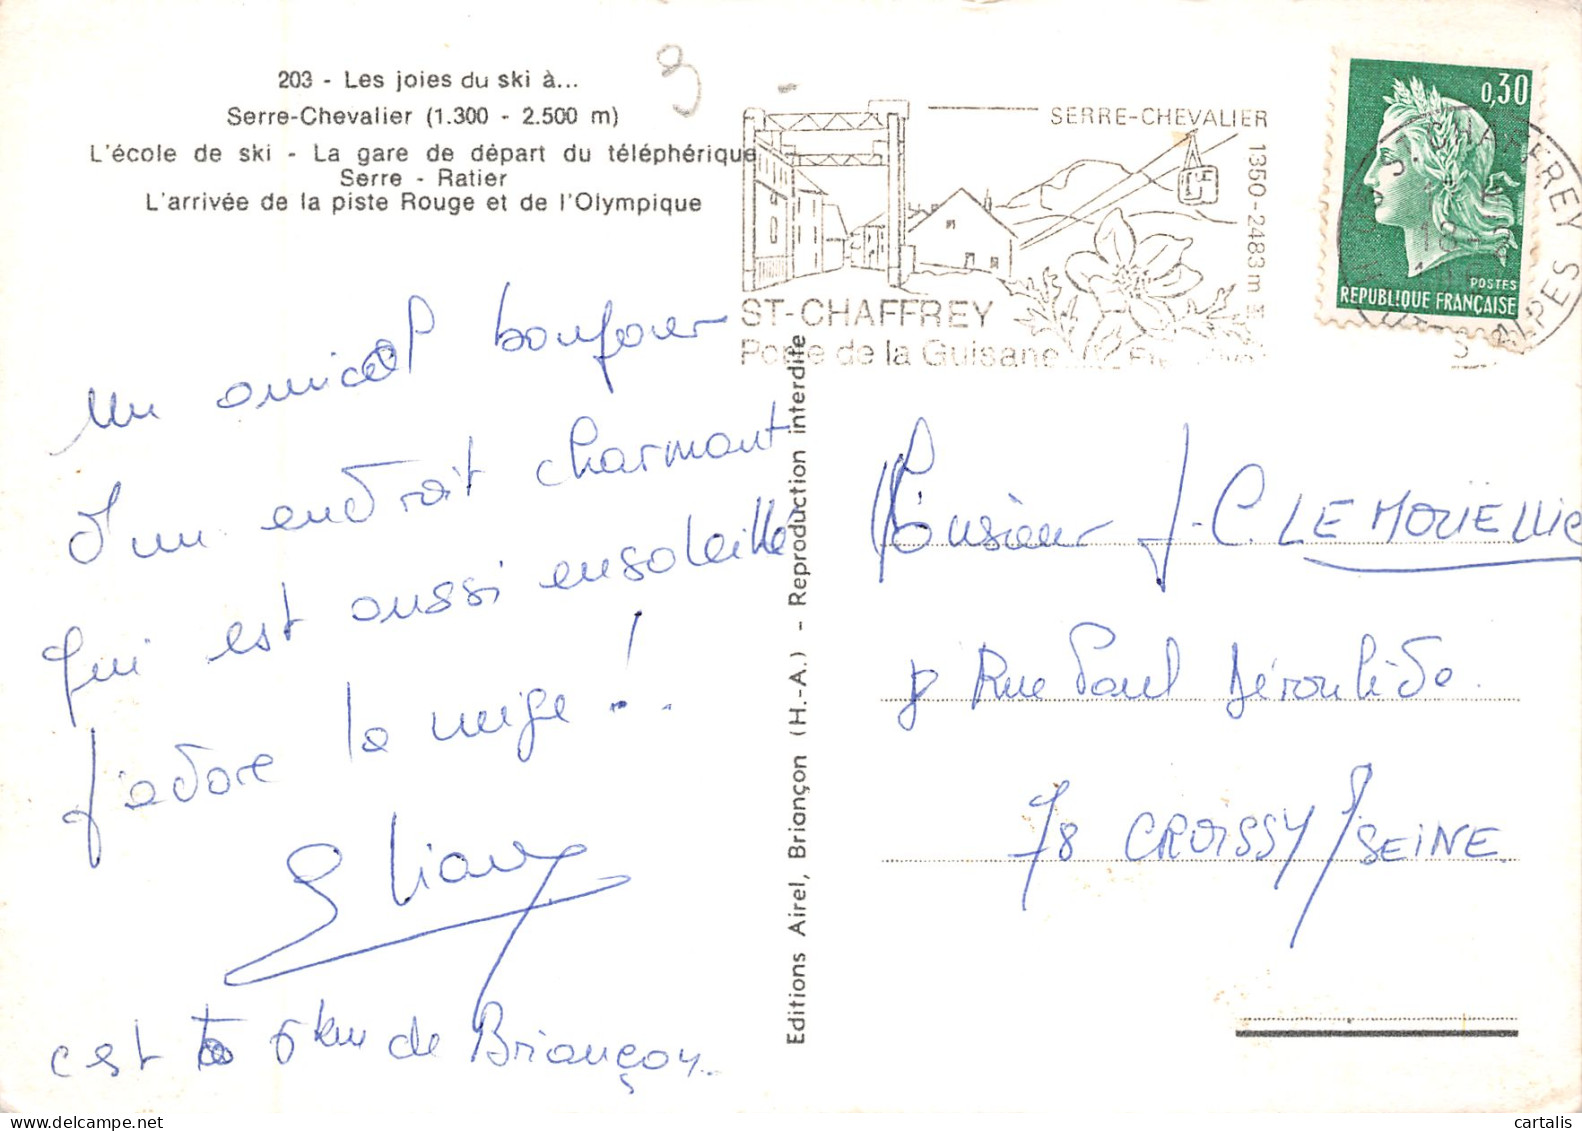 203 - Les joies du ski à...
Serre-Chevalier (1.300 - 2.500 m)
L'école de ski - La gare de départ du téléphérique
Serre - Ratier
L'arrivée de la piste Rouge et de l'Olympique
SERRE-CHEVALIER
1350-2483 m
ST-CHAFFREY
Porte de la Guisane
0,30
POSTES
REPUBLIQUE FRANÇAISE
ST. CHAFFREY
ALPES
18
Un amical bonjour
d'un endroit charmant
qui est aussi ensoleillé
j'adore la neige !..
c'est à 6 km de Briançon..
Editions Airel, Briançon (H.-A.) - Reproduction interdite
Monsieur J-C. LE
Rue Paul Déroulède.
78 CROISSY/SEINE
cartalis